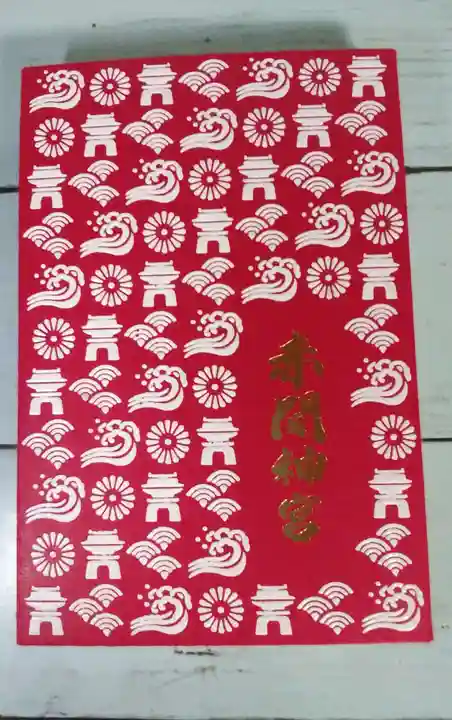 赤間神宮